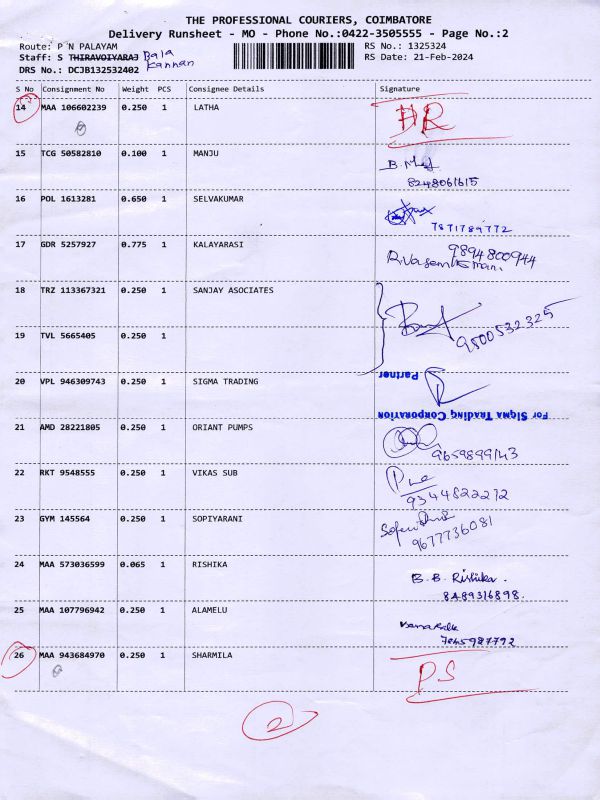 THE PROFESSIONAL COURIERS, COIMBATORE
Delivery Runsheet - MO - Phone No.:0422-3505555 - Page No.:2
Route: P N PALAYAM RS No.: 1325324
Staff: S THIRAVOIYARAJ Bala Kannan RS Date: 21-Feb-2024
DRS No.: DCJB132532402
S No Consignment No Weight PCS Consignee Details Signature
14 MAA 106602239 0.250 1 LATHA
15 TCG 50582810 0.100 1 MANJU
8248061615
16 POL 1613281 0.650 1 SELVAKUMAR
7871789772
17 GDR 5257927 0.775 1 KALAYARASI 9894800944
18 TRZ 113367321 0.250 1 SANJAY ASOCIATES
9500532325
19 TVL 5665405 0.250 1
Partner
20 VPL 946309743 0.250 1 SIGMA TRADING
For SIGMA TRADING CORPORATION
21 AMD 28221805 0.250 1 ORIANT PUMPS
9659899143
22 RKT 9548555 0.250 1 VIKAS SUB
9344822272
23 GYM 145564 0.250 1 SOPIYARANI
9677736081
24 MAA 573036599 0.065 1 RISHIKA B. B. Rishika.
8489316898.
25 MAA 107796942 0.250 1 ALAMELU
7845987792
26 MAA 943684970 0.250 1 SHARMILA PS
2